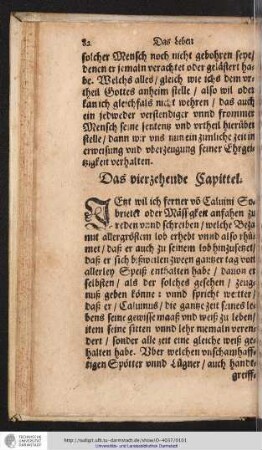 82 Das Leben
solcher Mensch noch nicht gebohren seye/
denen er jemaln verachtet oder gelästert ha-
be. Welchs alles / gleich wie ichs dem vr-
theil Gottes anheim stelle / also wil oder
kan ich gleichfals nicht wehren / das auch
ein jedweder verstendiger vnnd frommer
Mensch seine sentenz vnd vrtheil hierüber
stelle / dann wir vns nun ein zimliche zeit in
erweisung vnd vberzeugung seiner Ehrgei-
tzigkeit verhalten.
Das vierzehende Capittel.
JEtzt wil ich ferner vō Caluini So-
brietet oder Mässigkeit anfahen zu
reden vnnd schreiben / welche Beza
mit allergröstem lob erhebt vnnd also rhü-
met / daß er auch zu seinem lob hinzusetzet /
daß er sich bißweilen zween gantzer tag von
allerley Speiß enthalten habe / dauon er
selbsten / als der solches gesehen / zeug-
nuß geben könne: vnnd spricht weitter /
daß er / Caluinus / die gantze zeit seines le-
bens seine gewisse maaß vnd weiß zu leben /
item seine sitten vnnd lehr niemaln veren-
dert / sonder alle zeit eine gleiche weiß ge-
halten habe. Vber welchen vnschamhaff-
tigen Spötter vnnd Lügner / auch handt-
greiff-
http://tudigit.ulb.tu-darmstadt.de/show/G-4037/0101
Universitäts- und Landesbibliothek Darmstadt